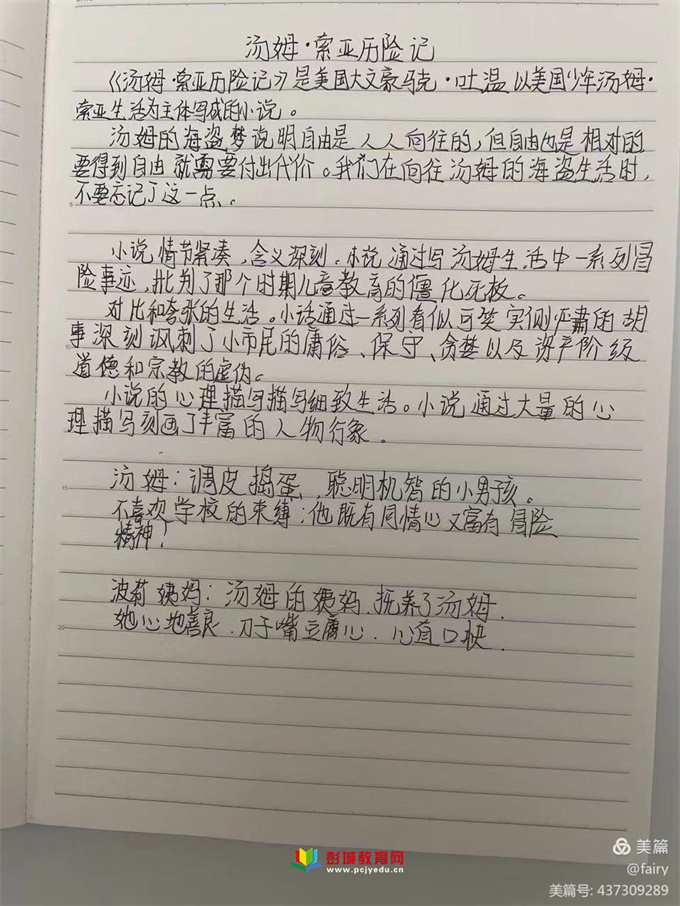 汤姆·索亚历险记
《汤姆·索亚历险记》是美国大文豪马克·吐温以美国少年汤姆·
索亚生活为主体写成的小说。
汤姆的海盗梦说明自由是人人向往的，但自由也是相对的
要得到自由就需要付出代价。我们在向往汤姆的海盗生活时，
不要忘记了这一点。
小说情节紧凑，含义深刻。本说通过写汤姆生活中一系列冒
险事迹，批判了那个时期儿童教育的僵化死板。
对比和夸张的生活。小话通过一系列看似可笑实则严肃的胡
事深刻讽刺了小市民的庸俗、保守、贪婪以及资产阶级
道德和宗教的虚伪。
小说的心理描写描写细致生活。小说通过大量的心
理描写刻画了丰富的人物行象。
汤姆：调皮捣蛋，聪明机智的小男孩。
不喜欢学校的束缚；他既有同情心又富有冒险
精神！
波莉姨妈：汤姆的姨妈，抚养了汤姆，
她心地善良，刀子嘴豆腐心，心直口快，
彭城教育网
www.pcjyedu.cn
美篇
@fairy
美篇号: 437309289